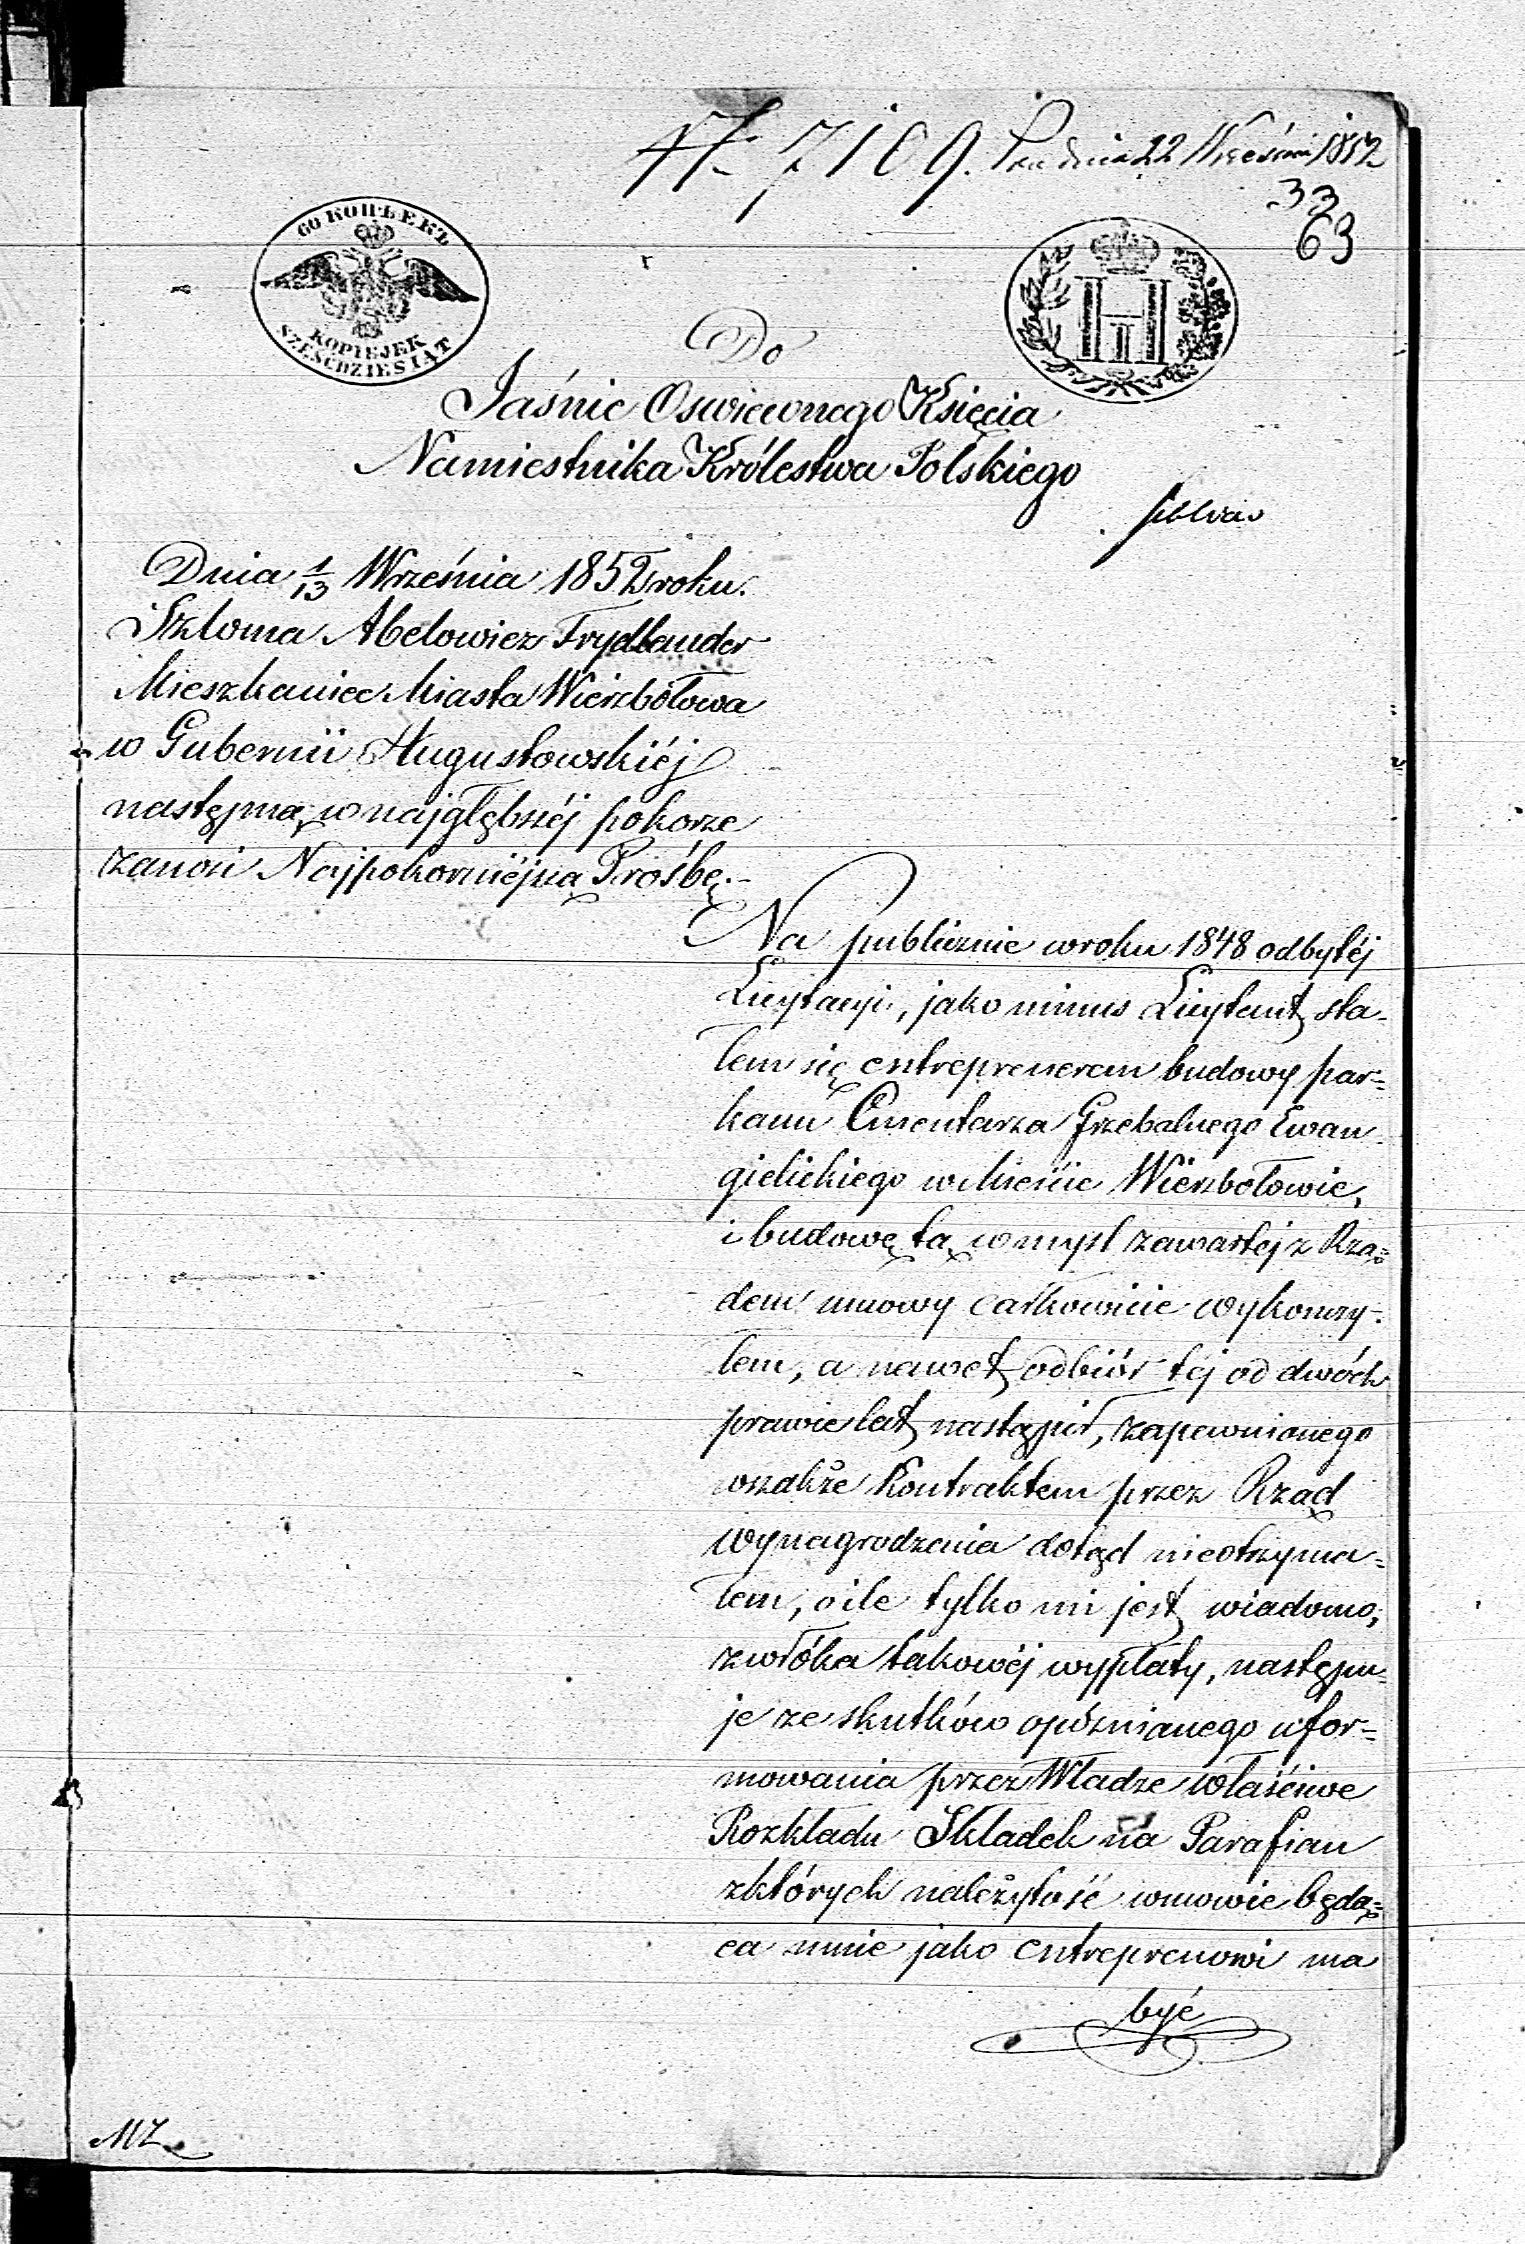 N 7109. dnia 22 Wrześni 1852
33
63
60 КОПѢЕКЪ
KOPIEJEK
SZEŚĆDZIESIĄT
Do
Jaśnie Oswieconego Księcia
Namiestnika Królestwa Polskiego
Dnia 1/13 Września 1852 roku.
Szloma Abelowicz Frydlander
Mieszkaniec Miasta Wierzbołowa
w Gubernii Augustowskiéj
następną, w najgłębszéj pokorze
zanosi Najpokorniéjszą Prośbę.-
Na publicznie w roku 1848 odbytéj
Licytacyi, jako minus Licytant, sta-
łem się entreprenerem budowy par=
kanu Cmentarza Grzebalnego Ewan
gielickiego w Mieście Wierzbołowie,
i budowę tą w myśl zawartéj z Rzą=
dem umowy całkowicie wykonczy-
łem, a nawet odbiór téj od dwóch
prawie lat nastąpił, zapewnionego
wszakże Kontraktem przez Rząd
wynagrodzenia dotąd nieotrzyma=
łem, o ile tylko mi jest wiadomo,
zwłóka takowéj wypłaty, następu=
je ze skutków opóznianego ufor=
mowania przez Władze właściwe
Rozkładu Składek na Parafian
z których należytość w mowie będą=
ca mnie jako entreprenowi ma
być
MZ